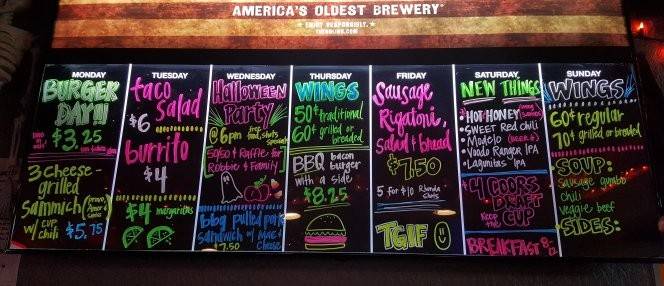 AMERICA'S OLDEST BREWERY
ENJOY RESPONSIBLY.
YUENGLING.COM
MONDAY
BURGER
DAY!!!
$3.25
3 CHEESE-
grilled
Sammich
w/ cup
chili
$5.75
TUESDAY
taco
salad
$6
burrito
$4
$4 margaritas
WEDNESDAY
Halloween
Party
@ 6pm
50/50 + Raffle for
Robbie & Family
bbq pulled pork
sandwich w/ Mac &
Cheese
7.50
THURSDAY
WINGS
50¢ traditional
60¢ grilled or breaded
BBQ bacon
burger
with a side
$8.25
FRIDAY
Sausage,
Rigatoni,
Salad & bread
$7.50
5 for $10
TGIF
SATURDAY
NEW THINGS
• HOT HONEY
• SWEET Red chili
• Modelo
• Voodo Ranger IPA
• Lagunitas IPA
4 COORS
DRAFT
Keep the
CUP
BREAKFAST 8-12
SUNDAY
WINGS
60¢ regular
70¢ grilled or breaded
SOUP:
Sausage gumbo
chili
veggie beef
SIDES: